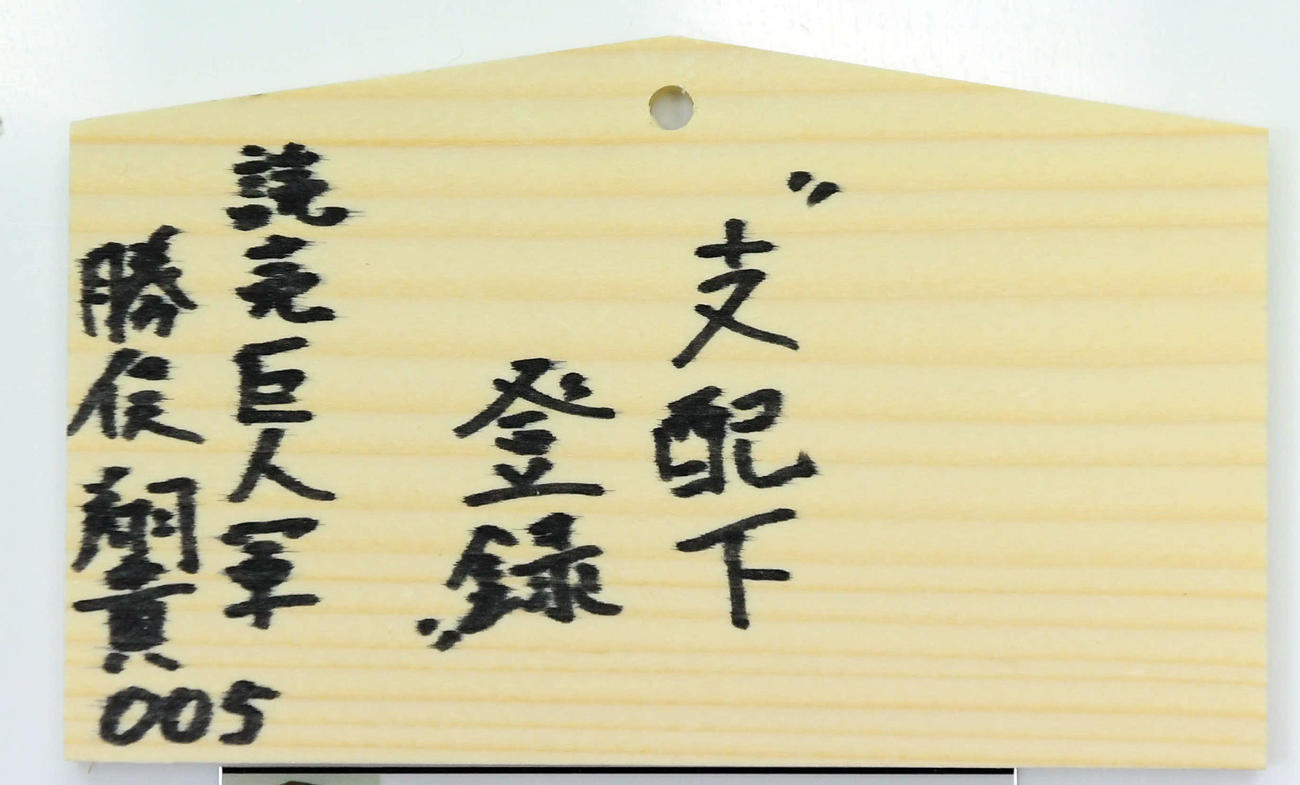 〝支配下
登録〟
読売巨人軍
勝俣翔貴
005